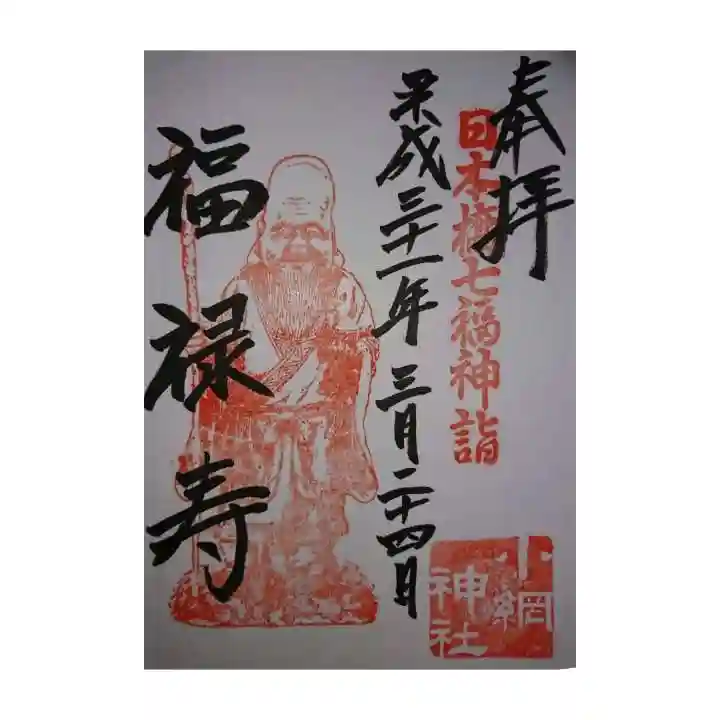 奉拝
日本橋七福神詣
平成三十一年三月二十四日
福禄寿
小網
神社